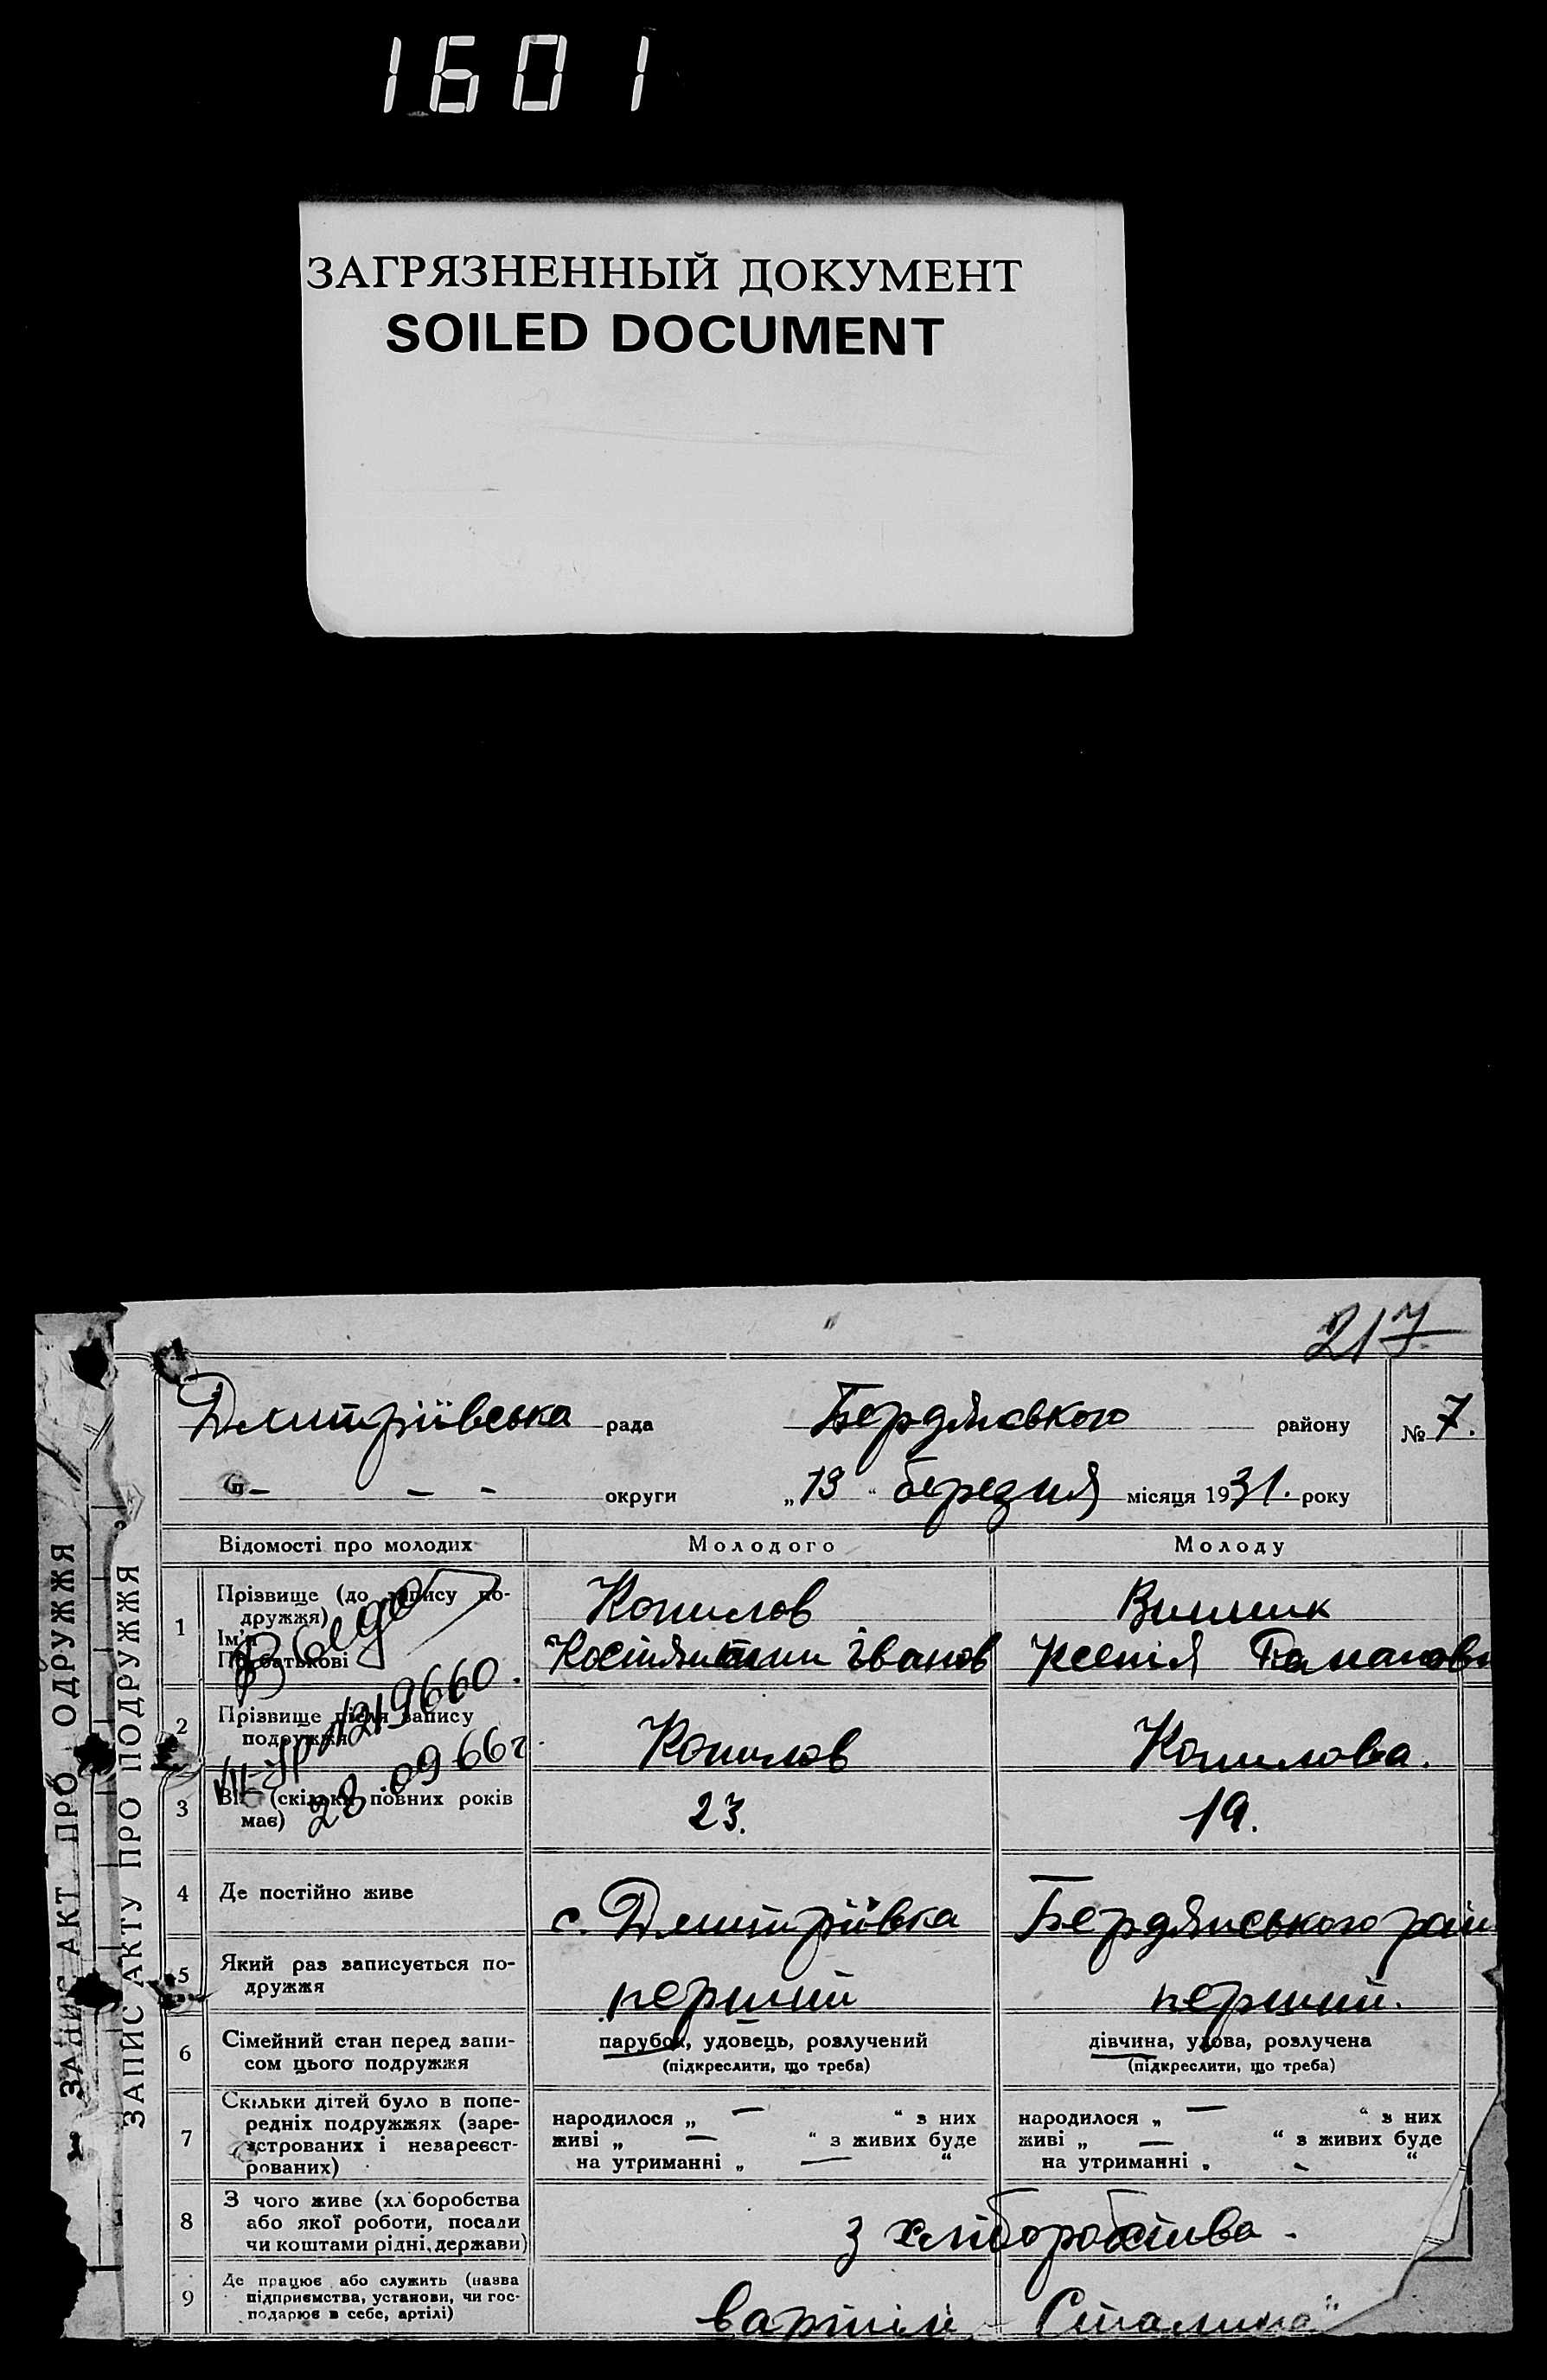 1601
ЗАГРЯЗНЕННЫЙ ДОКУМЕНТ
SOILED DOCUMENT
217
ЗАПИС АКТ ПРО ОДРУЖЖЯ
ЗАПИС АКТУ ПРО ПОДРУЖЖЯ
Дмитріївська рада Бердянського району № 7.
округи „13“ березня місяця 1931. року
Відомості про молодих Молодого Молоду
1 Прізвище (до запису по-
дружжя)
Ім'я
По батькові
Копилов Винник
Костянтин Іванов Ксенія
1219660.
23 09 66г.
2 Прізвище після запису
подружжя
Копилов Копилова.
3 Вік (скільки повних років
має)
23. 19.
4 Де постійно живе
с. Дмитріївка Бердянського рай
5 Який раз записується по-
дружжя
перший перший.
6 Сімейний стан перед запи-
сом цього подружжя
парубок, удовець, розлучений дівчина, удова, розлучена
(підкреслити, що треба) (підкреслити, що треба)
7 Скільки дітей було в попе-
редніх подружжях (заре-
єстрованих і незареєст-
рованих)
народилося „ — “ з них народилося „ — “ з них
живі „ — “ з живих буде живі „ — “ з живих буде
на утриманні „ — “ на утриманні „ - “
8 З чого живе (хл боробства
або якої роботи, посали
чи коштами рідні, держави)
З хліборобства -
9 Де працює або служить (назва
підприємства, установи, чи гос-
подарює в себе, артілі)
в артілі Сталина"